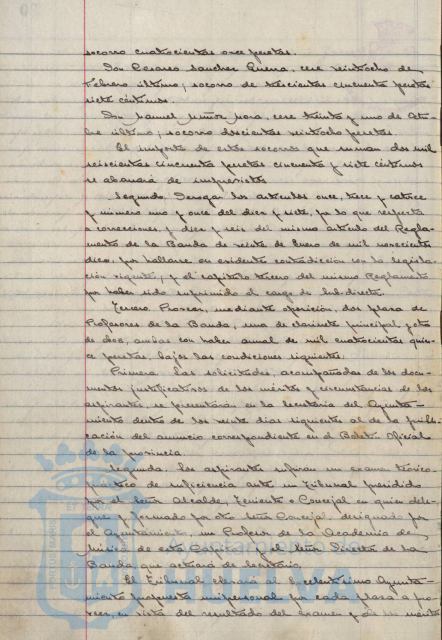 socorro cuatrocientas once pesetas.
Don Cesareo Sanchez Guerra, cese veintiocho de
Febrero último; socorro de trescientas cincuenta pesetas
siete céntimos.
Don Manuel Muñoz Mora, cese treinta y uno de Octu-
bre último; socorro doscientas veintiocho pesetas.
El importe de estos socorros que suman dos mil
seiscientas cincuenta pesetas cincuenta y siete céntimos
se abonará de imprevistos.
Segundo. Derogar los artículos once, trece y catorce
y número uno y once del diez y siete, por lo que respecta
a correcciones, y diez y seis del mismo artículo del Regla-
mento de la Banda de veinte de Enero de mil novecientos
diez, por hallarse en evidente contradicción con la legisla-
ción vigente, y el capítulo tercero del mismo Reglamento
por haber sido suprimido el cargo de Sub-director.
Tercero. Proveer, mediante oposición, dos plazas de
Profesores de la Banda, una de clarinete principal y otra
de oboe, ambas con haber anual de mil cuatrocientas quin-
ce pesetas, bajo las condiciones siguientes:
Primera. Las solicitudes, acompañadas de los docu-
mentos justificativos de los méritos y circunstancias de los
aspirantes, se presentarán en la Secretaría del Ayunta-
miento dentro de los veinte días siguientes al de la publi-
cación del anuncio correspondiente en el Boletín Oficial
de la provincia.
Segunda. Los aspirantes sufrirán un examen teórico
práctico de suficiencia ante un Tribunal presidido
por el Señor Alcalde, Teniente o Concejal en quien dele-
gue, y formado por otro Señor Concejal, designado por
el Ayuntamiento, un Profesor de la Academia de
Música de esta Capital y el Señor Director de la
Banda, que actuará de Secretario.
El Tribunal elevará al Excelentísimo Ayunta-
miento propuesta unipersonal por cada plaza a pro-
veer, en vista del resultado del examen y de los mérito